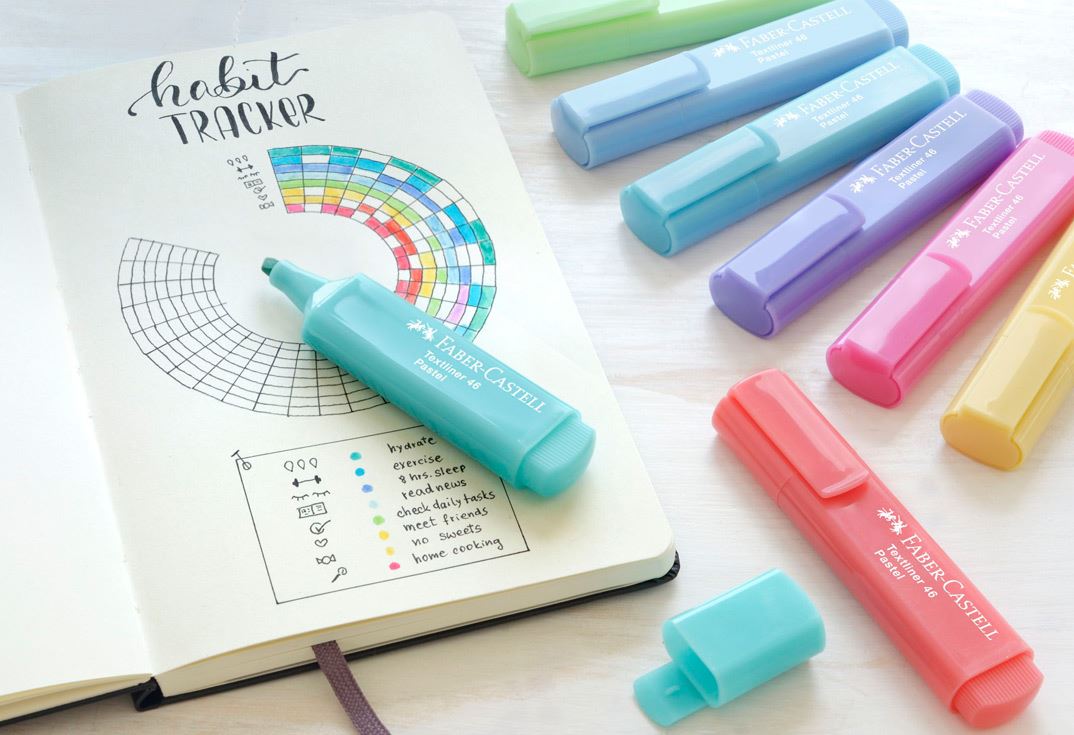 habit
TRACKER
hydrate
exercise
8 hrs. sleep
read news
check daily tasks
meet friends
no sweets
home cooking
FABER-CASTELL
Textliner 46
Pastel
FABER-CASTELL
Textliner 46
Pastel
FABER-CASTELL
Textliner 46
Pastel
FABER-CASTELL
Textliner 46
Pastel
FABER-CASTELL
Textliner 46
Pastel
FABER-CASTELL
Textliner 46
Pastel